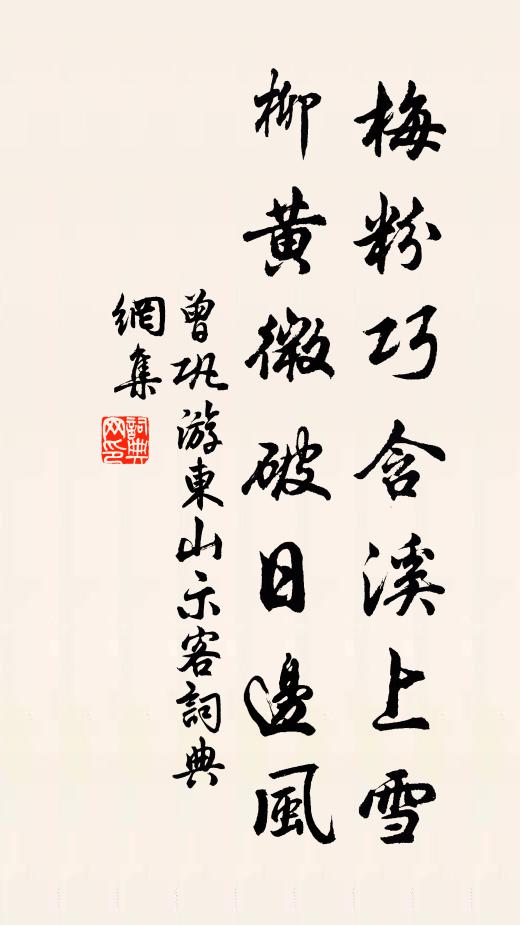 梅粉巧含溪上雪
柳黃微破日邊風
曾巩游東山示客詞典
網集
詞典
网印